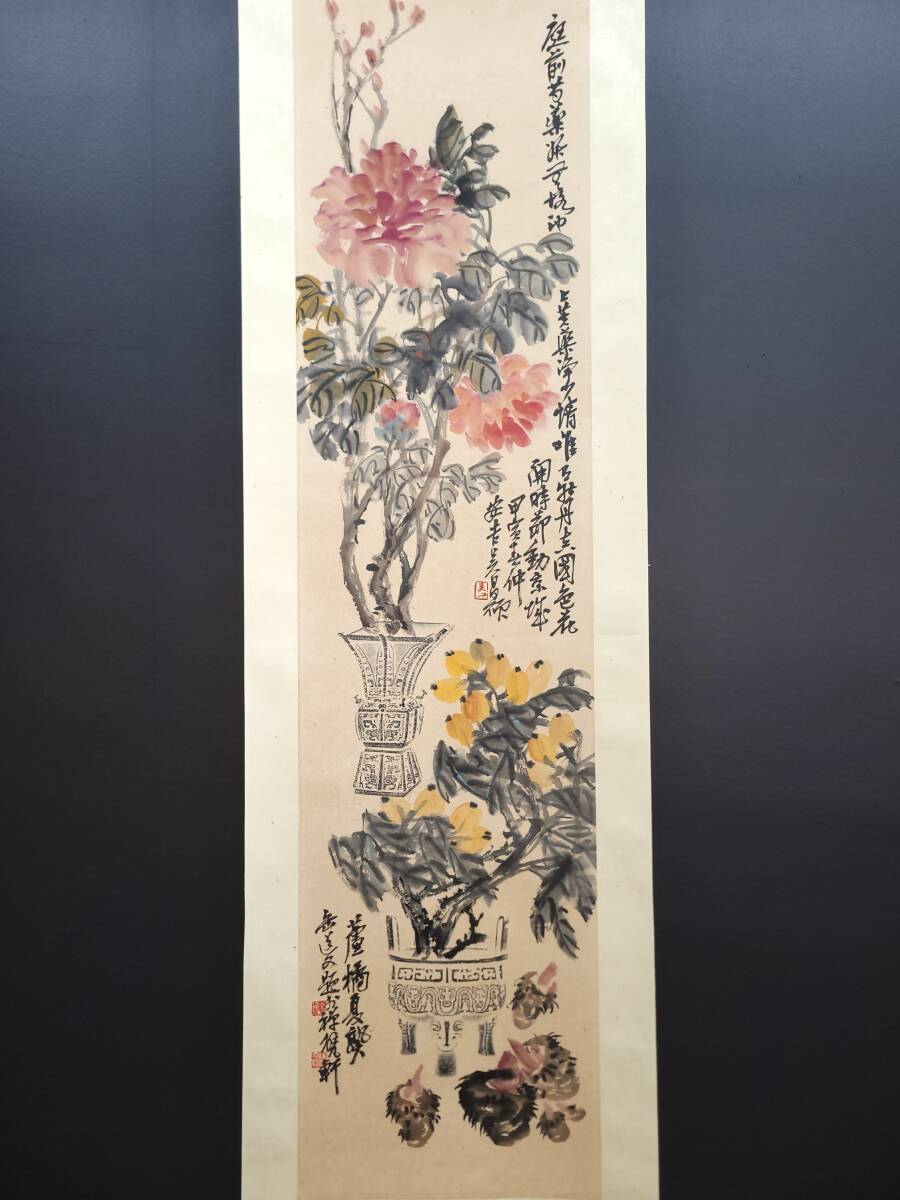 庭前芍藥妖無格池
上芙蕖淨少情唯有牡丹真國色花
開時節動京城
甲寅春仲
安吉吳昌碩
蘆橘夏熟
缶道又題於禪甓軒